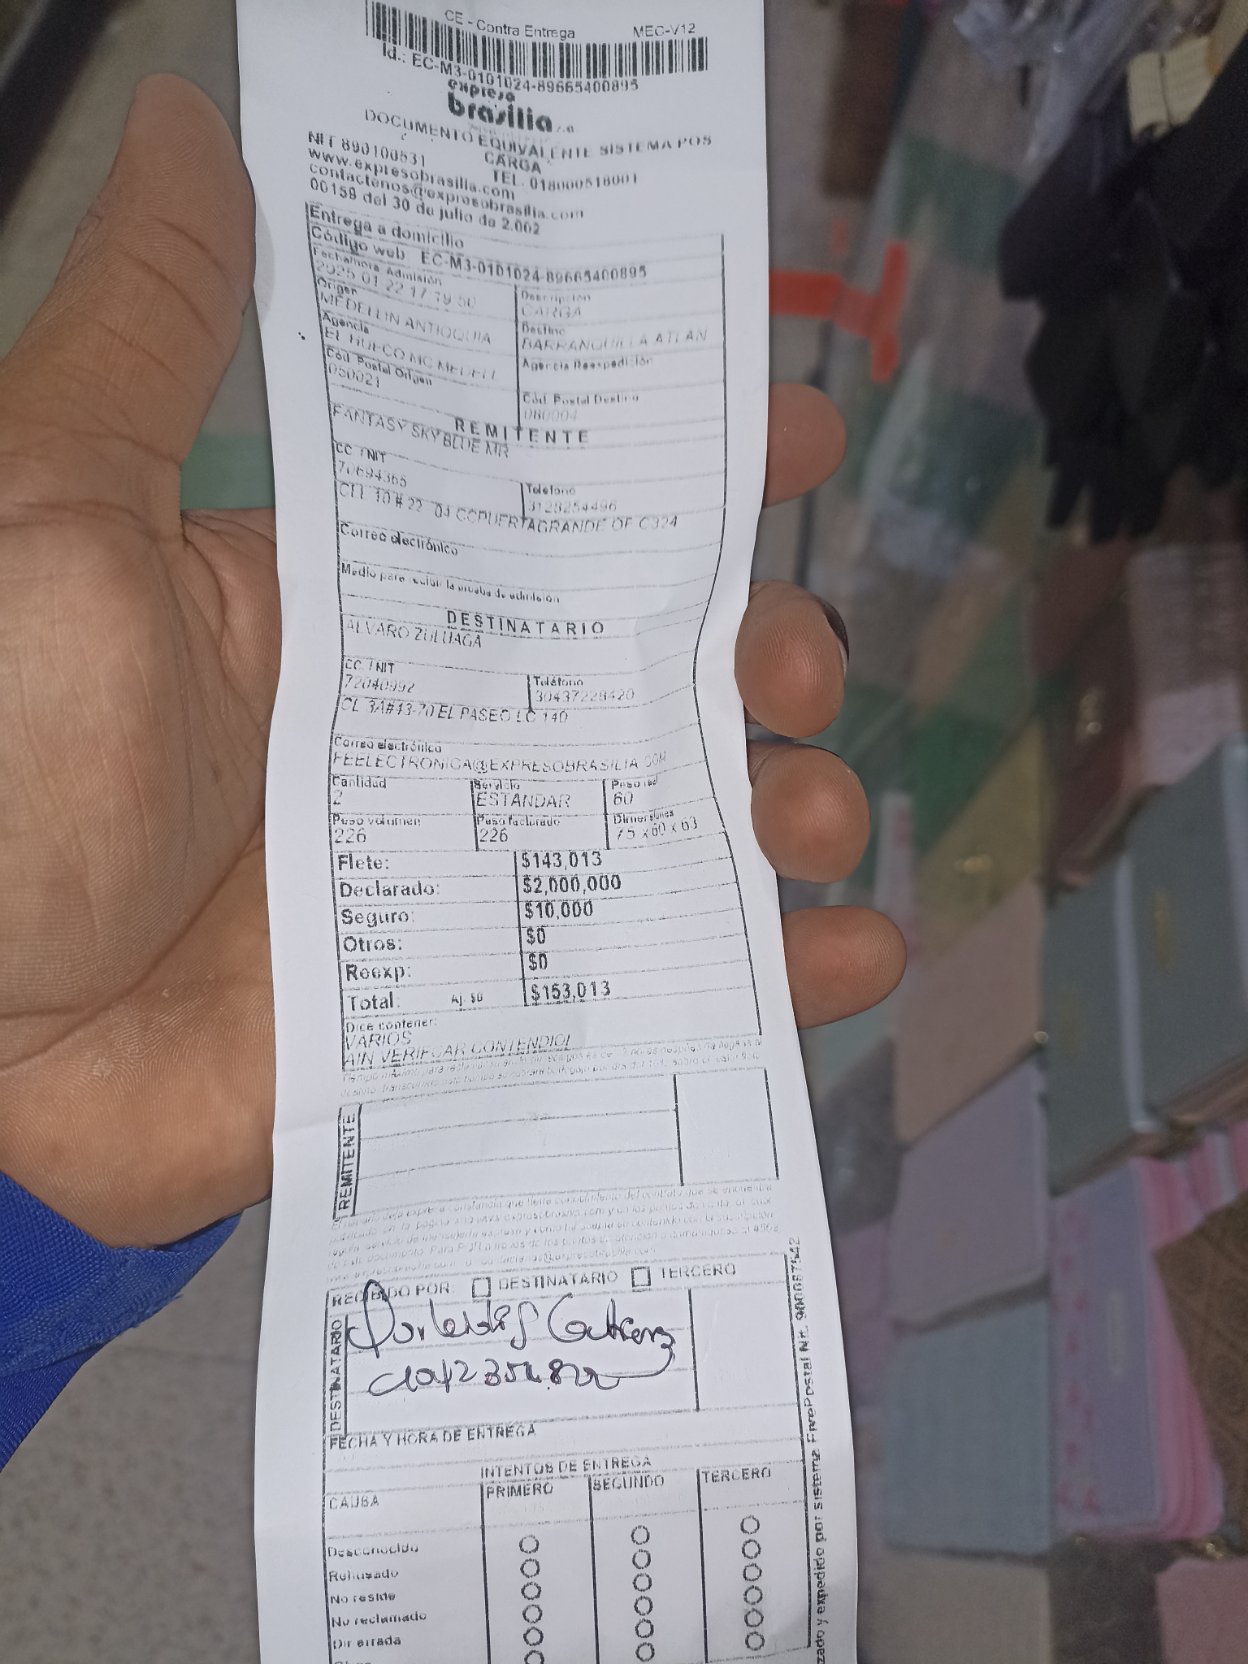 CE - Contra Entrega MEC-V12
Id.: EC-M3-0101024-89665400895
expreso
brasilia s.a
DOCUMENTO EQUIVALENTE SISTEMA POS
CARGA
NIT 890100531 TEL. 018000518001
www.expresobrasilia.com
contactenos@expresobrasilia.com
00159 del 30 de julio de 2.002
Entrega a domicilio
Código web: EC-M3-0101024-89665400895
Fecha/Hora Admisión
2025 01 22 17 19 50
Descripción
CARGA
Origen
MEDELLIN ANTIOQUIA
Destino
BARRANQUILLA ATLAN
Agencia
EL HUECO MC MEDELL
Agencia Reexpedición
Cód. Postal Origen
050021
Cód. Postal Destino
080004
REMITENTE
FANTASY SKY BLUE MR
CC / NIT
70694365
Teléfono
3128254496
CLL 10 # 22 04 CCPUERTAGRANDE OF C324
Correo electrónico
Medio para recibir la prueba de admisión
DESTINATARIO
ALVARO ZULUAGA
CC / NIT
72040992
Teléfono
30437228420
CL 3A#43-70 EL PASEO LC 140
Correo electrónico
FEELECTRONICA@EXPRESOBRASILIA.COM
Cantidad
2
Servicio
ESTANDAR
Peso real
60
Peso volumen
226
Peso facturado
226
Dimensiones
75 x 60 x 63
Flete: $143,013
Declarado: $2,000,000
Seguro: $10,000
Otros: $0
Reexp: $0
Total: Aj. $0 $153,013
Dice contener:
VARIOS
AIN VERIFCAR CONTENDIO!
REMITENTE
RECIBIDO POR: DESTINATARIO TERCERO
DESTINATARIO
Gutierrez
FECHA Y HORA DE ENTREGA
INTENTOS DE ENTREGA
CAUSA PRIMERO SEGUNDO TERCERO
Desconocido
Rehusado
No reside
No reclamado
Dir errada
zado y expedido por sistema FreePostal Nit. 900087542